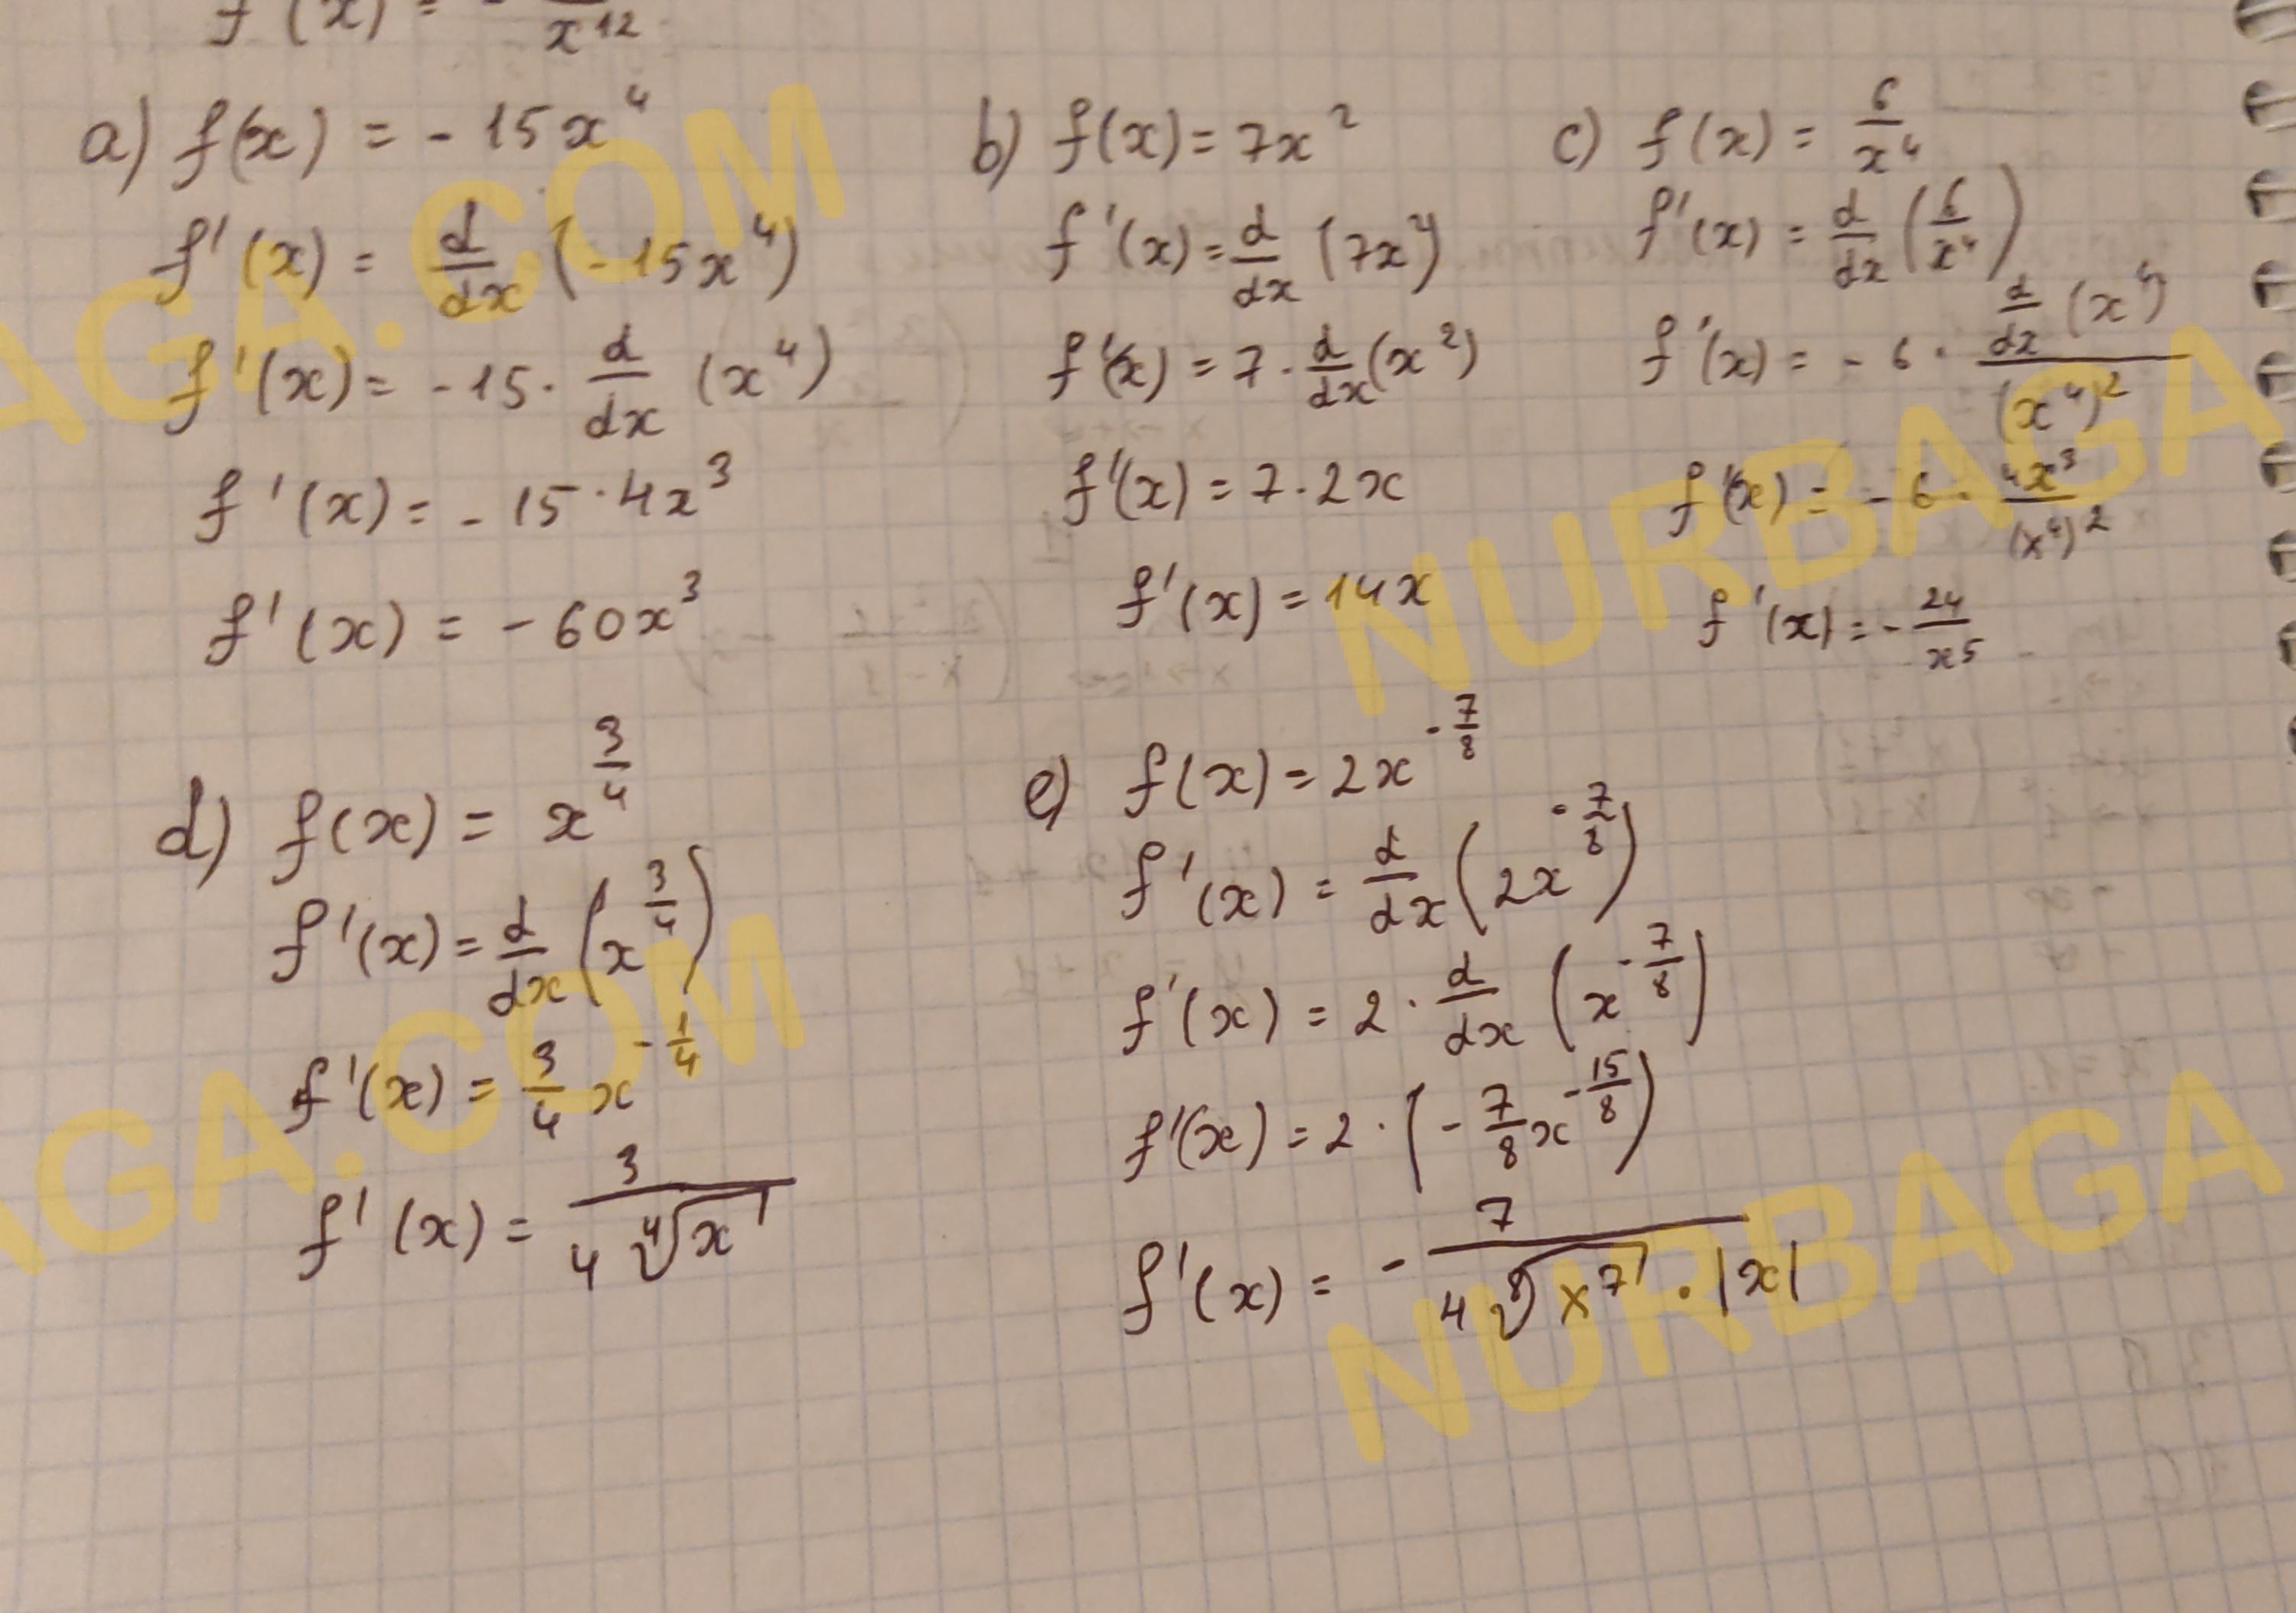 f'(x) = - — x^12
a) f(x) = - 15x^4
f'(x) = d/dx (-15x^4)
f'(x) = -15 · d/dx (x^4)
f'(x) = - 15 · 4x^3
f'(x) = - 60x^3
b) f(x) = 7x^2
f'(x) = d/dx (7x^2)
f'(x) = 7 · d/dx (x^2)
f'(x) = 7 · 2x
f'(x) = 14x
c) f(x) = 6/x^4
f'(x) = d/dx (6/x^4)
f'(x) = - 6 · d/dx (x^4) / (x^4)^2
f'(x) = - 6 · 4x^3/(x^4)^2
f'(x) = - 24/x^5
d) f(x) = x^(3/4)
f'(x) = d/dx (x^(3/4))
f'(x) = 3/4 x^(-1/4)
f'(x) = 3/(4 ∜x)
e) f(x) = 2x^(-7/8)
f'(x) = d/dx (2x^(-7/8))
f'(x) = 2 · d/dx (x^(-7/8))
f'(x) = 2 · (-7/8 x^(-15/8))
f'(x) = - 7/(4 ⁸√x^7 · |x|)
NURBAGA.COM
NURBAGA.COM
NURBAGA
NURBAGA